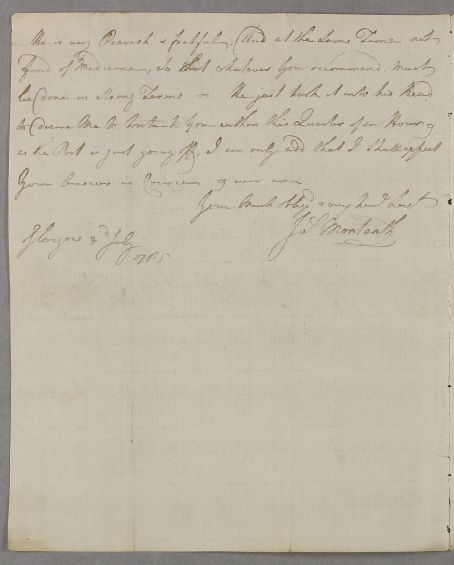 He is very Peevish & fretfull, And at the same Time not
fond of Medicine, so that whatever You recommend. must
be done in strong Terms — He just took it into his Head
to desire Me to write to You within this Quarter of an Hour, &
as the Post is just going off, I can only add that I shall expect
Your answer in Course & ever am
Your Much Obliġd & very humḷ Servt
J S Monteath
Glasgow 2d July
1785